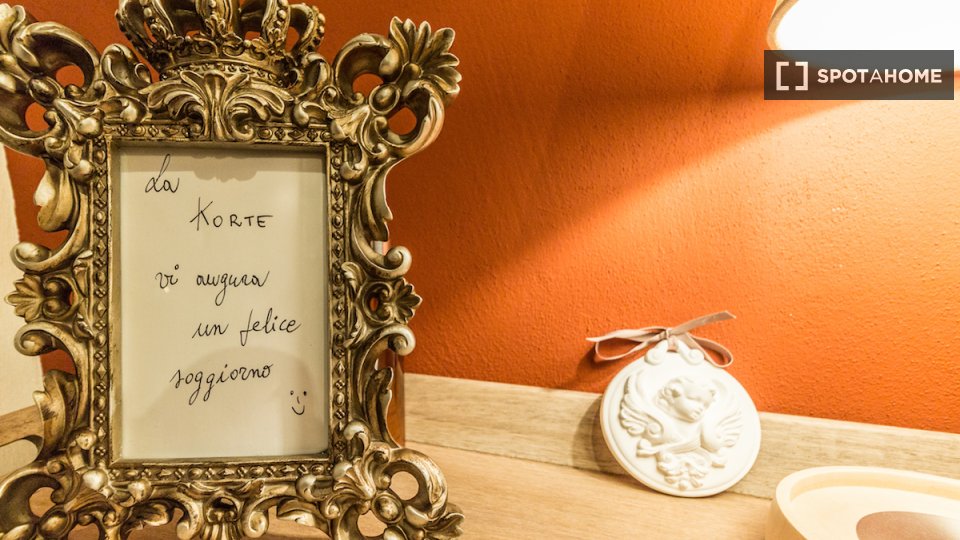 SPOTAHOME
La
KORTE
vi augura
un felice
soggiorno